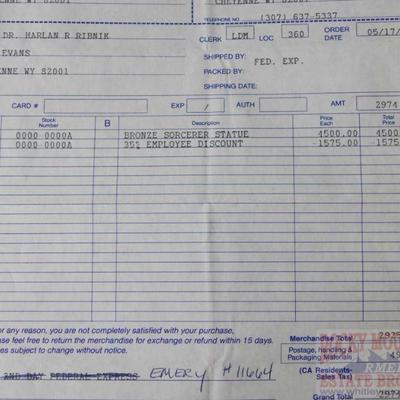 ENNE WY 82001 CHEYENNE WY 82001
TELEPHONE NO (307) 637-5337
DR. HARLAN R RIBNIK
EVANS
ENNE WY 82001
CLERK LDM LOC 360 ORDER DATE 05/17/
SHIPPED BY: FED. EXP.
PACKED BY:
SHIPPING DATE:
CARD # EXP / AUTH AMT 2974
Stock Number B Description Price Each Total Price
0000-0000A BRONZE SORCERER STATUE 4500.00 4500
0000-0000A 35% EMPLOYEE DISCOUNT -1575.00 -1575
or any reason, you are not completely satisfied with your purchase,
ase feel free to return the merchandise for exchange or refund within 15 days.
es subject to change without notice.
Merchandise Total 2925
Postage, handling & Packaging Materials 49
(CA Residents-
Sales Tax)
Grand Total 2974
2ND DAY FEDERAL EXPRESS EMERY # 11664
ESTATE BRO
www.whitley